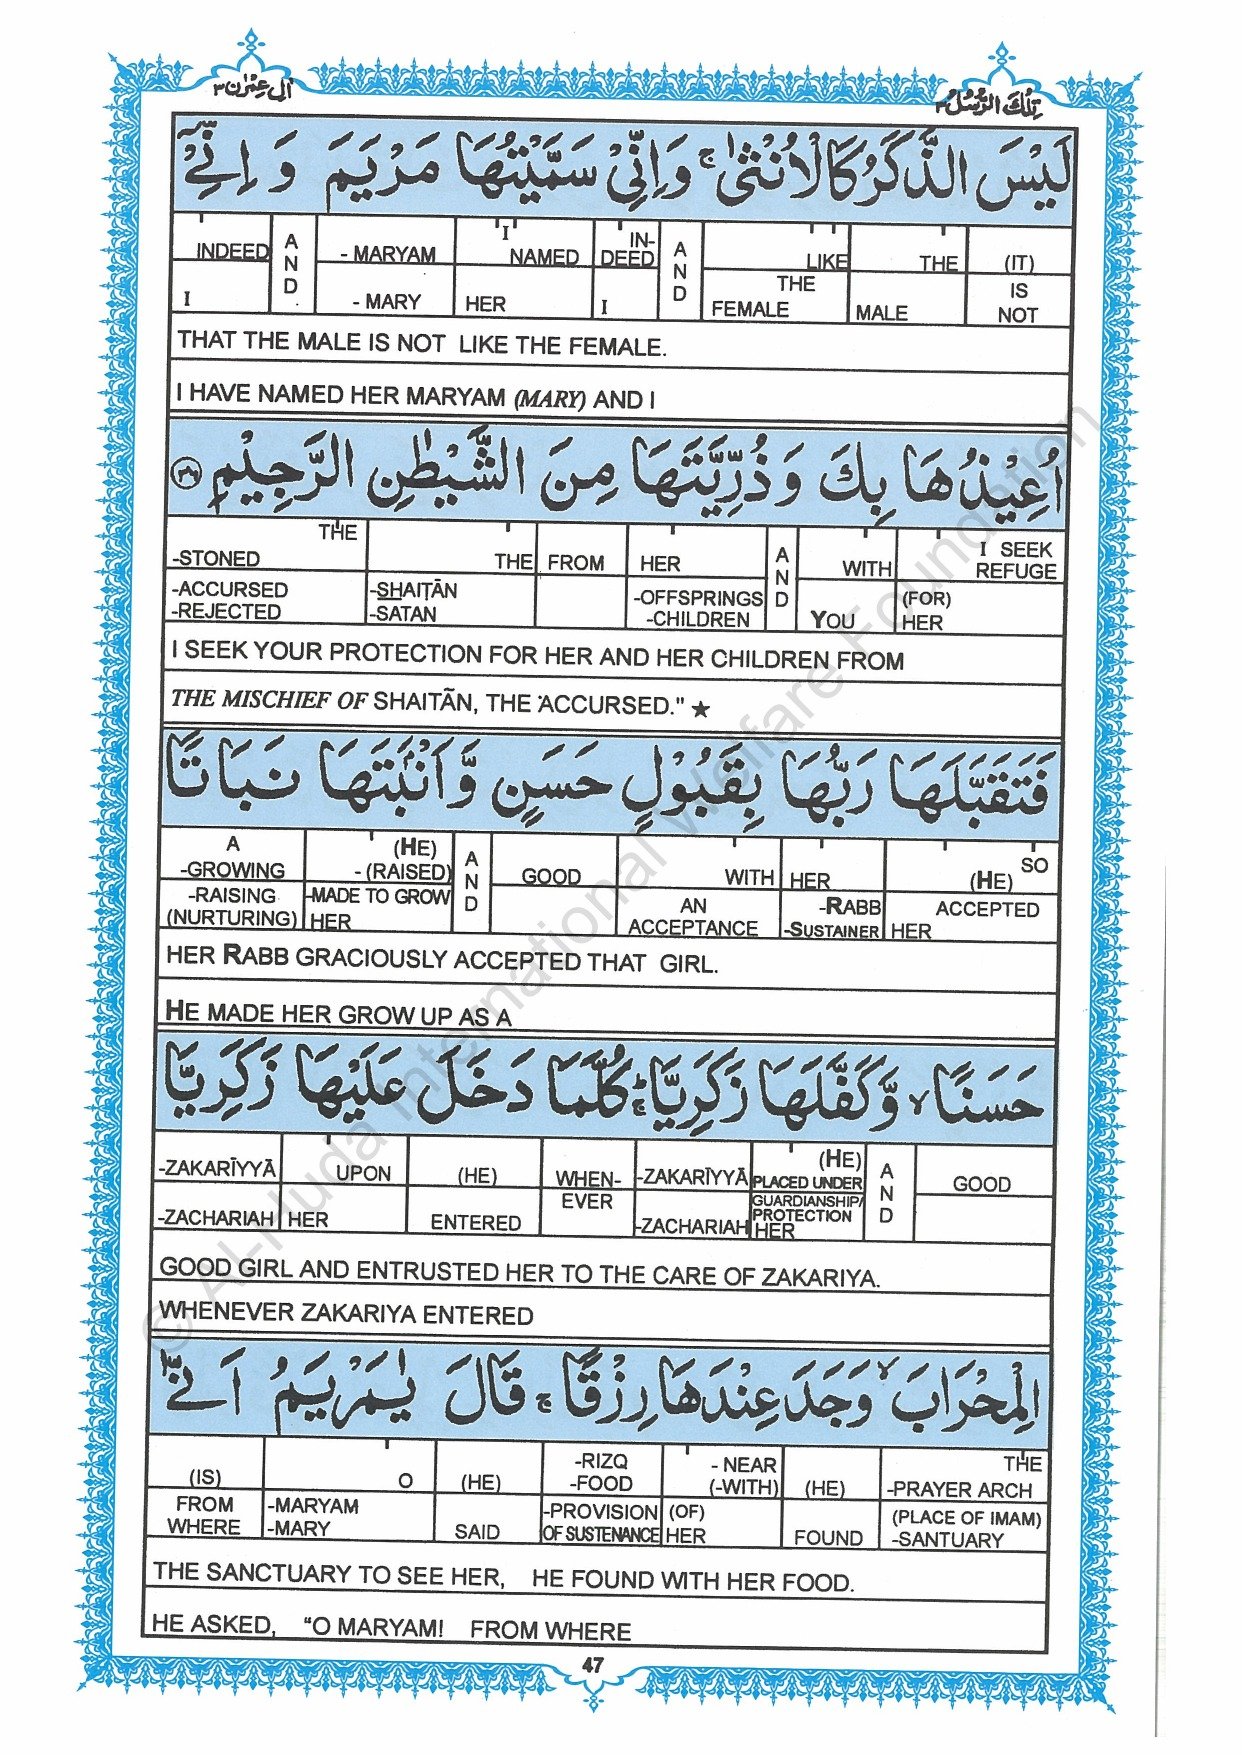 اٰلِ عِمْرٰن ٣
تِلْكَ الرُّسُلُ ٣
لَيْسَ الذَّكَرُ كَالْاُنْثٰى ۚ وَاِنِّىْ سَمَّيْتُهَا مَرْيَمَ وَ اِنِّىْۤ
INDEED I AND -MARYAM - MARY I NAMED HER IN-DEED I AND LIKE THE FEMALE THE MALE (IT) IS NOT
THAT THE MALE IS NOT LIKE THE FEMALE.
I HAVE NAMED HER MARYAM (MARY) AND I
اُعِيْذُهَا بِكَ وَ ذُرِّيَّتَهَا مِنَ الشَّيْطٰنِ الرَّجِيْمِ ﴿٣٦﴾
THE -STONED -ACCURSED -REJECTED THE -SHAIṬĀN -SATAN FROM HER -OFFSPRINGS -CHILDREN AND WITH YOU I SEEK REFUGE (FOR) HER
I SEEK YOUR PROTECTION FOR HER AND HER CHILDREN FROM
THE MISCHIEF OF SHAITĀN, THE ACCURSED." ★
فَتَقَبَّلَهَا رَبُّهَا بِقَبُوْلٍ حَسَنٍ وَّ اَنْۢبَتَهَا نَبَاتًا
A -GROWING -RAISING (NURTURING) (HE) - (RAISED) -MADE TO GROW HER AND GOOD WITH AN ACCEPTANCE HER -RABB -SUSTAINER SO (HE) ACCEPTED HER
HER RABB GRACIOUSLY ACCEPTED THAT GIRL.
HE MADE HER GROW UP AS A
حَسَنًا ۙ وَّ كَفَّلَهَا زَكَرِيَّا ۚ كُلَّمَا دَخَلَ عَلَيْهَا زَكَرِيَّا
-ZAKARĪYYĀ -ZACHARIAH UPON HER (HE) ENTERED WHEN-EVER -ZAKARĪYYĀ -ZACHARIAH (HE) PLACED UNDER GUARDIANSHIP/ PROTECTION HER AND GOOD
GOOD GIRL AND ENTRUSTED HER TO THE CARE OF ZAKARIYA.
WHENEVER ZAKARIYA ENTERED
الْمِحْرَابَ ۙ وَجَدَ عِنْدَهَا رِزْقًا ۚ قَالَ يٰمَرْيَمُ اَنّٰى
(IS) FROM WHERE O -MARYAM -MARY (HE) SAID -RIZQ -FOOD -PROVISION OF SUSTENANCE - NEAR (-WITH) (OF) HER (HE) FOUND THE -PRAYER ARCH (PLACE OF IMAM) -SANTUARY
THE SANCTUARY TO SEE HER, HE FOUND WITH HER FOOD.
HE ASKED, “O MARYAM! FROM WHERE
47
© Al-Huda International Welfare Foundation